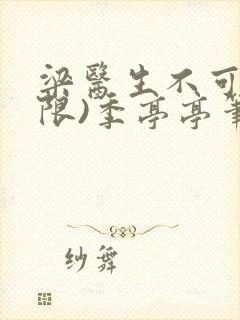 梁醫生不可
限)季亭亭筆
纱舞